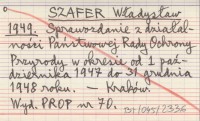 SZAFER Władysław
1949. Sprawozdanie z działal-
ności Państwowej Rady Ochrony
Przyrody w okresie od 1 paź-
dziernika 1947 do 31 grudnia
1948 roku. — Kraków.
Wyd. PROP nr 70.